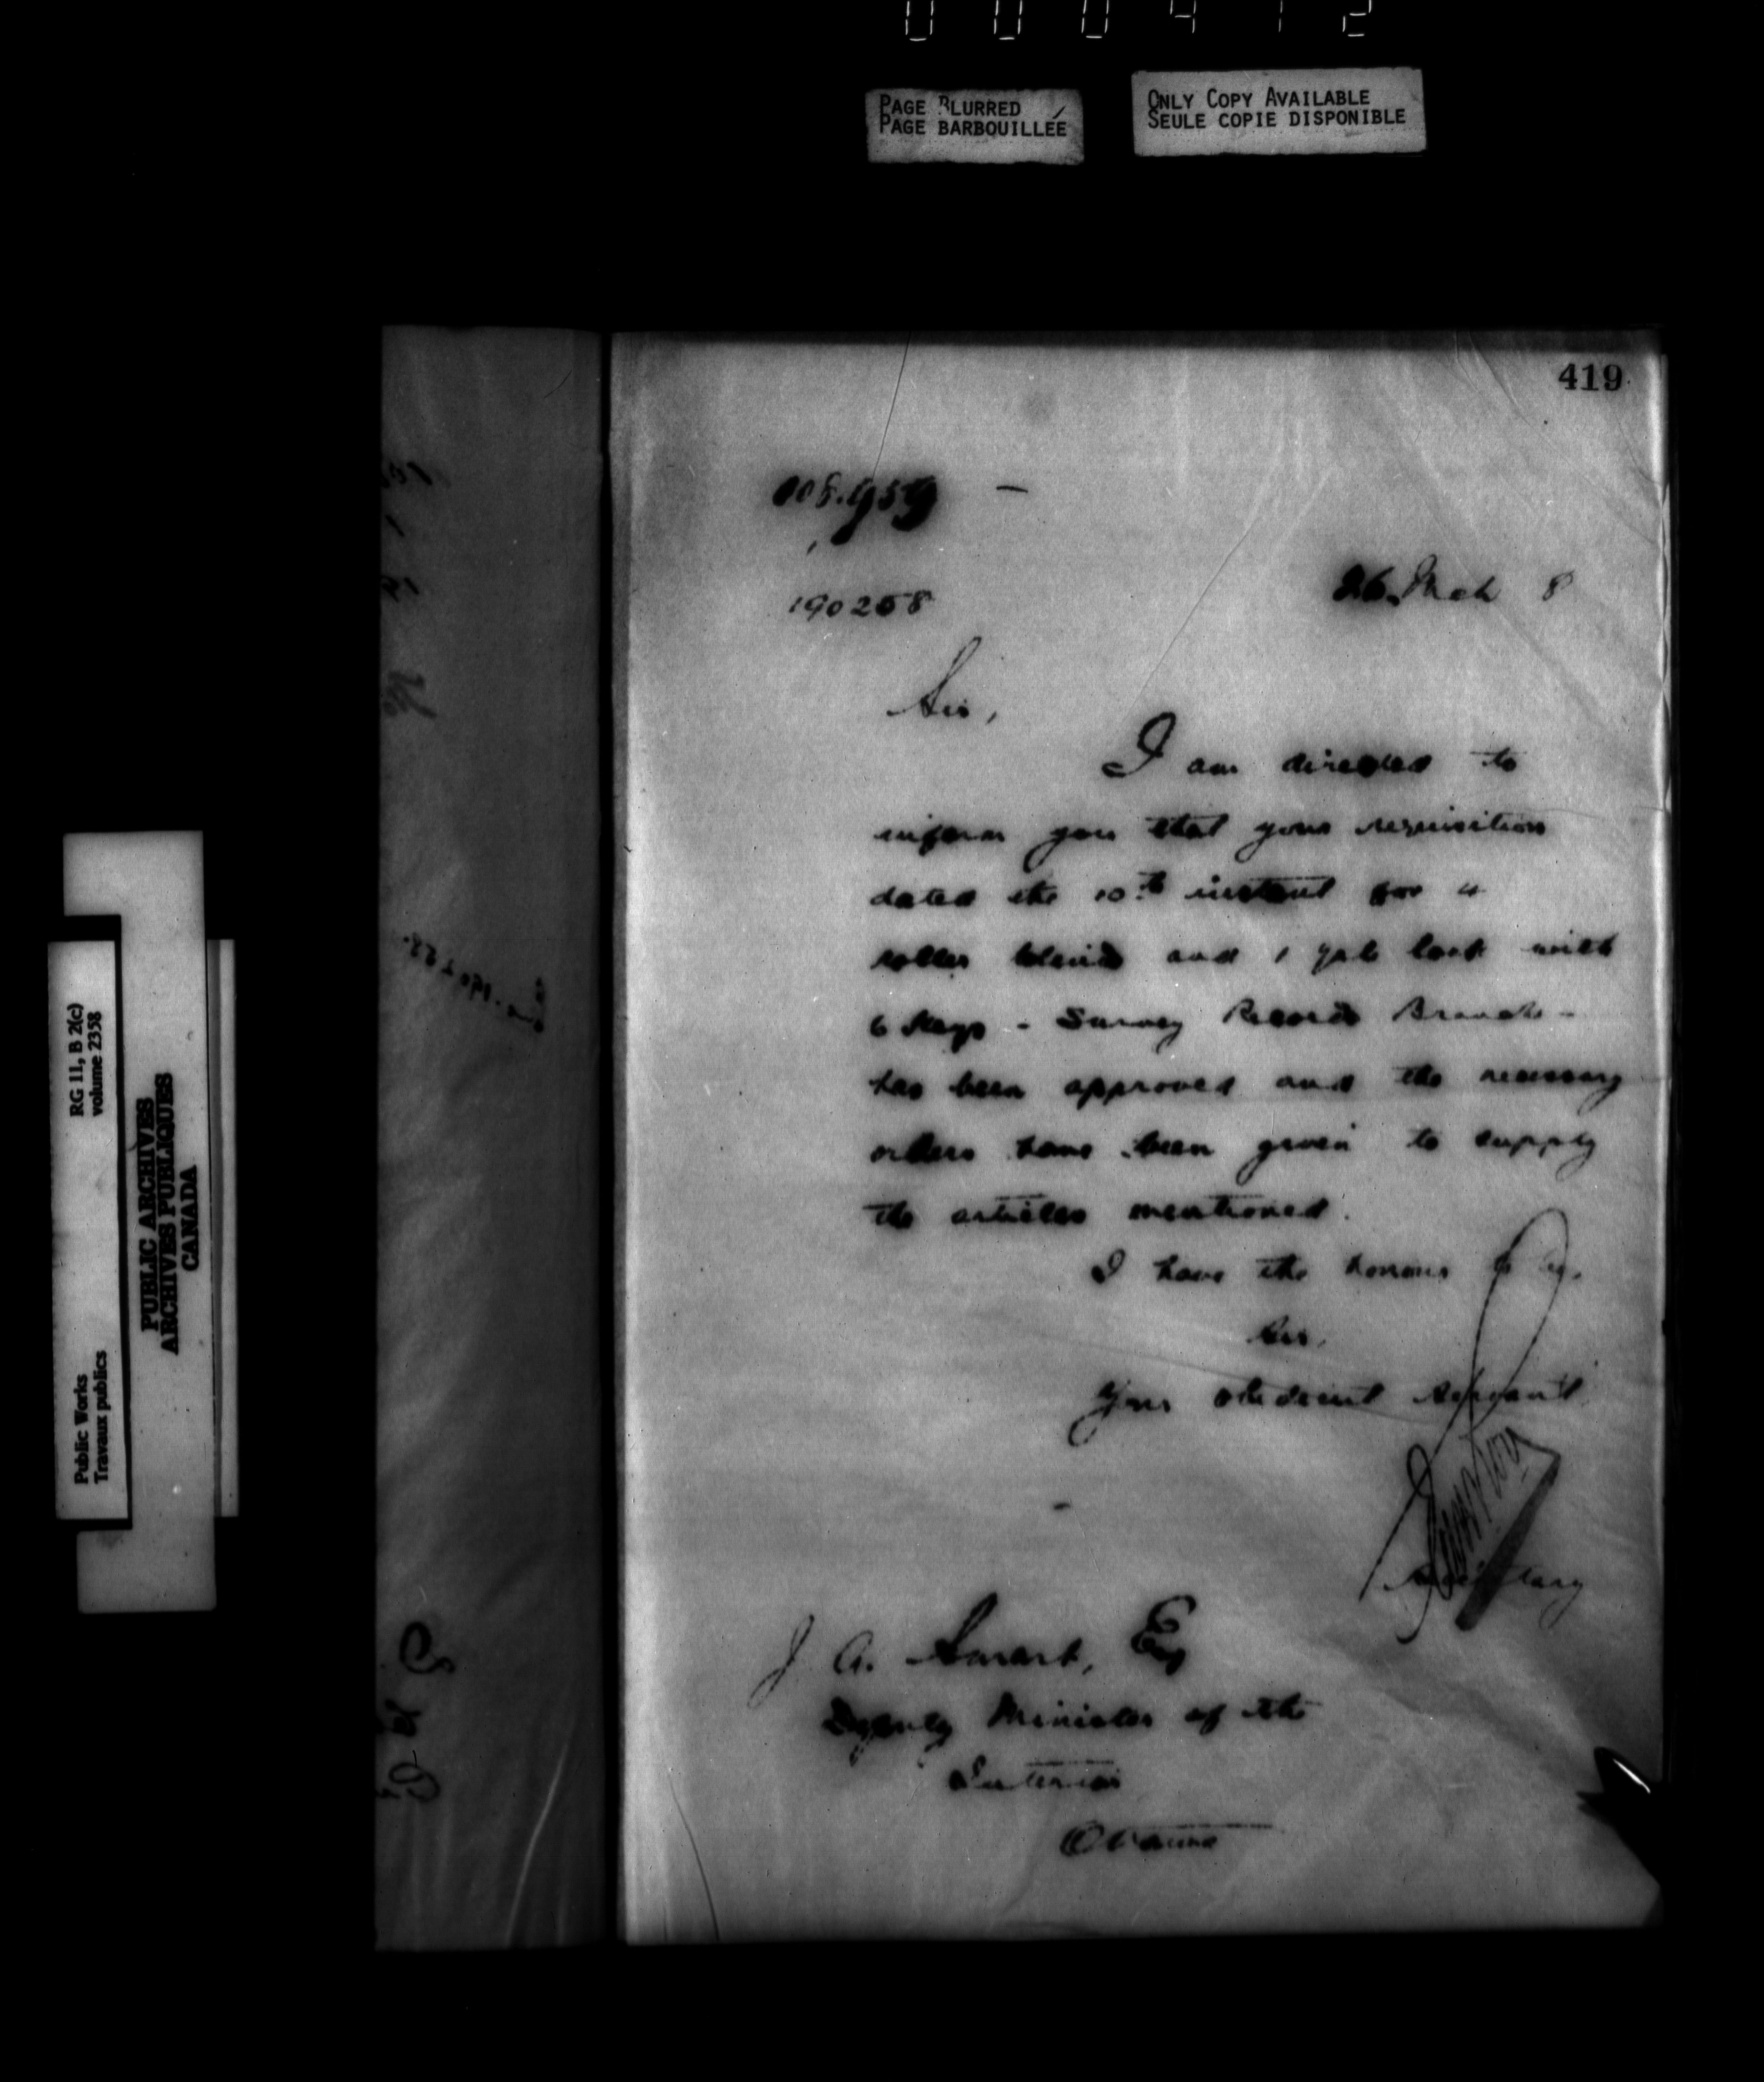 000412
PAGE BLURRED
PAGE BARBOUILLÉE
ONLY COPY AVAILABLE
SEULE COPIE DISPONIBLE
419
190258
26. Mch 8
Sir,
I am directed to
inform you that your requisition
dated the 10th instant for 4
roller blinds and 1 yale lock with
6 keys - Survey Records Branch -
has been approved and the necessary
orders have been given to supply
the articles mentioned.
I have the honour to be,
Sir,
Your obedient servant
Secretary
J. A. Smart, Esq
Deputy Minister of the
Interior
Ottawa
RG 11, B 2(c)
volume 2358
Public Works
Travaux publics
PUBLIC ARCHIVES
ARCHIVES PUBLIQUES
CANADA